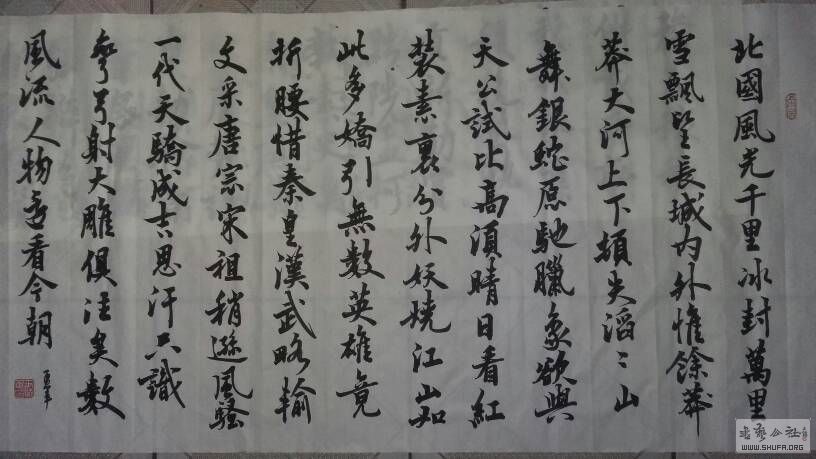 北國風光千里冰封萬里
雪飄望長城內外惟餘莽
莽大河上下頓失滔〻山
舞銀蛇原馳臘象欲與
天公試比高須晴日看紅
裝素裹分外妖嬈江山如
此多嬌引無數英雄竟
折腰惜秦皇漢武略輸
文采唐宗宋祖稍遜風騷
一代天驕成吉思汗只識
彎弓射大雕俱往矣數
風流人物還看今朝
書藝公社
WWW.SHUFA.ORG